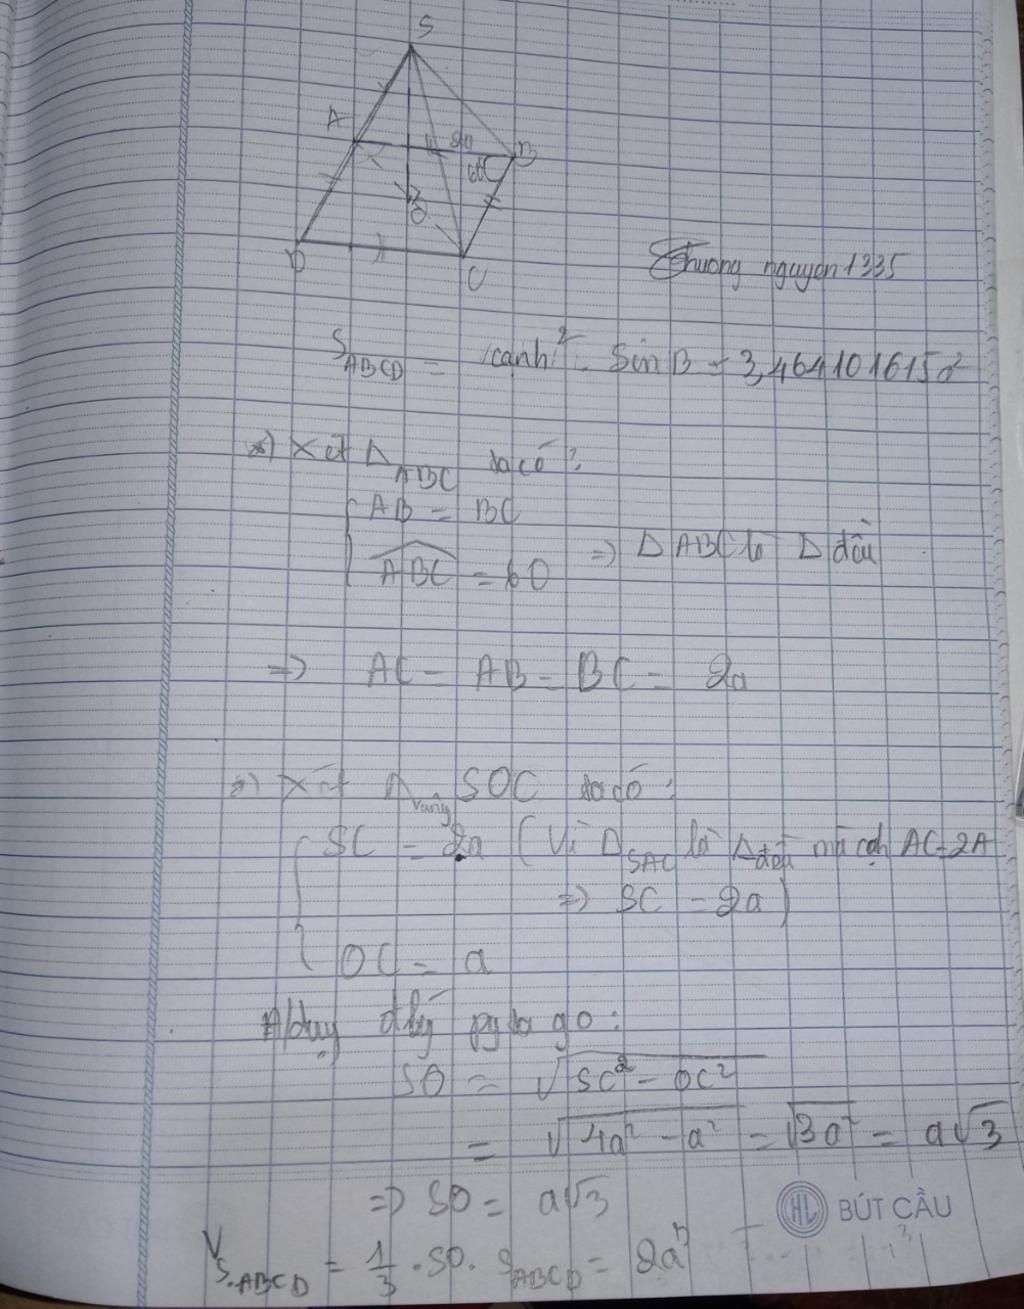 S
A
2a
B
60
O
D
C
Thuong nguyen1335
S ABCD = (cạnh)². Sin B = 3,464101615a²
*) Xét Δ ABC ta có :
AB = BC
ABC = 60 => Δ ABC là Δ đều
=> AC = AB = BC = 2a
*) Xét Δ vuông SOC ta có :
SC = 2a (Vì Δ SAC là Δ đều mà cạh AC=2A
=> SC = 2a)
OC = a
Áp dụng đlý pytago :
SO = √SC² - OC²
= √4a² - a² = √3a² = a√3
=> SO = a√3
HL BÚT CẦU
V S.ABCD = 1/3 . SO . S ABCD = 2a